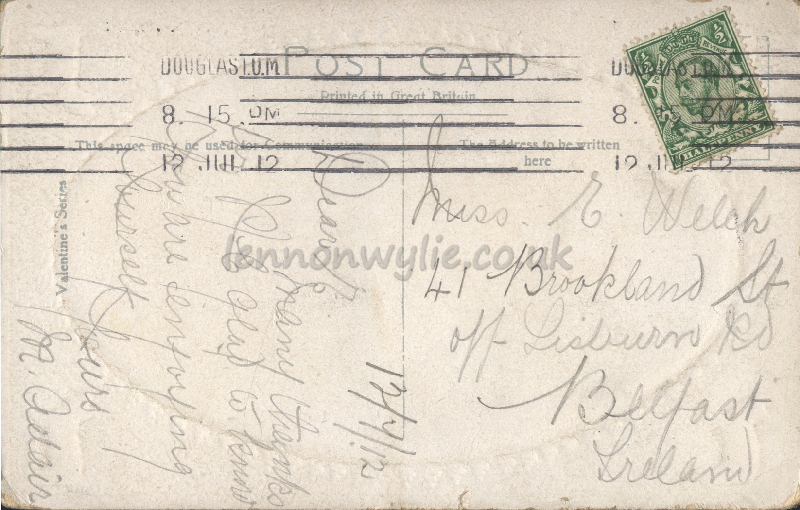 POST CARD
Printed in Great Britain
DOUGLAS I.O.M
8. 15 PM
12 JUL 12
DOUGLAS I.O.M
8. 15 PM
12 JUL 12
HALFPENNY
This space may be used for Communication
The Address to be written
here
Valentine's Series
Miss. E. Welch
41 Brookland St
off Lisburn Rd
Belfast
Ireland
12/7/12
Dear E
Many thanks
for P.C. Glad to know
you are enjoying
yourself
Yours
M. Adair
lennonwylie.co.uk